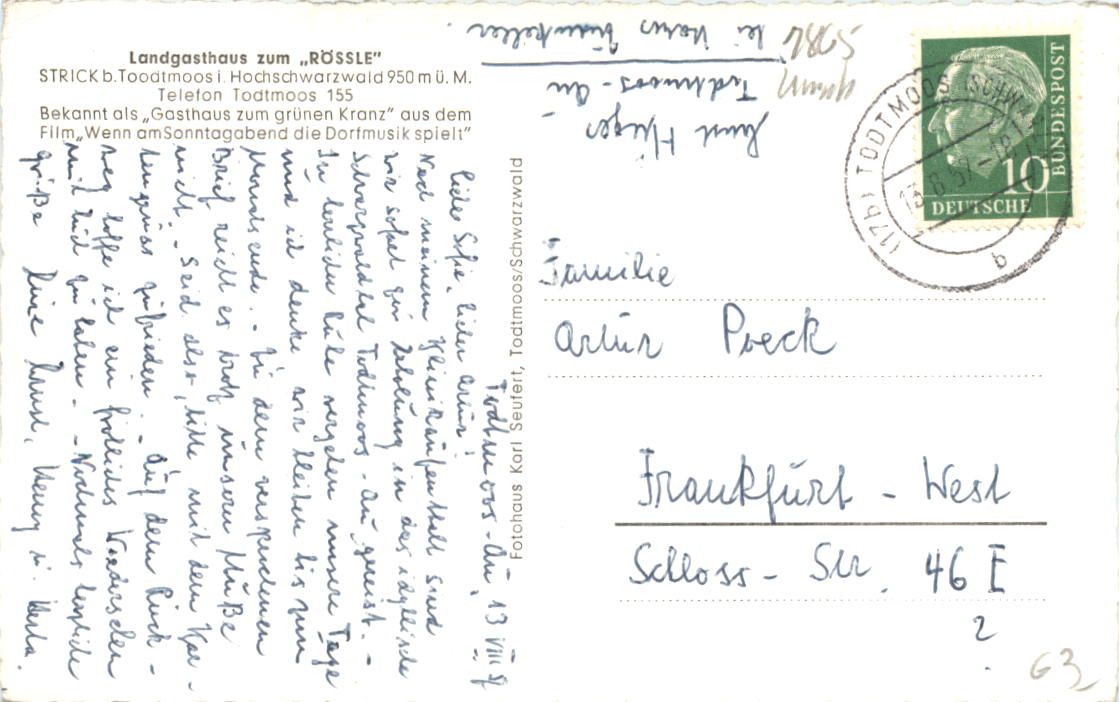 Landgasthaus zum „RÖSSLE"
STRICK b. Toodtmoos i. Hochschwarzwald 950 m ü. M.
Telefon Todtmoos 155
Bekannt als „Gasthaus zum grünen Kranz" aus dem
Film „Wenn am Sonntagabend die Dorfmusik spielt"
Todtmoos-Au, 13 VIII 57
Liebe Sofie, lieber Artur!
Nach meinem Klinikaufenthalt sind
wir sofort zur Erholung in das idyllische
Schwarzwaldtal Todtmoos-Au gereist. -
In herrlicher Ruhe vergehen unsere Tage
und ich denke wir bleiben bis zum
Monatsende. - Zu dem versprochenen
Brief reicht es trotz unserer Muße
nicht. - Seid also, bitte mit dem Kar-
tengruss zufrieden. - Auf dem Rück-
weg hoffe ich ein fröhliches Wiedersehen
mit Euch zu haben. - Nochmals herzliche
Grüße Eure Ernst, Henny u.
Fotohaus Karl Seufert, Todtmoos/Schwarzwald
Ernst
Todtmoos-Au
bei
Familie
Artur Poeck
Frankfurt - West
Schloss-Str. 46 I
2
63
(17b) TODTMOOS (SCHWARZW)
13.8.57.-18
b
10
DEUTSCHE
BUNDESPOST